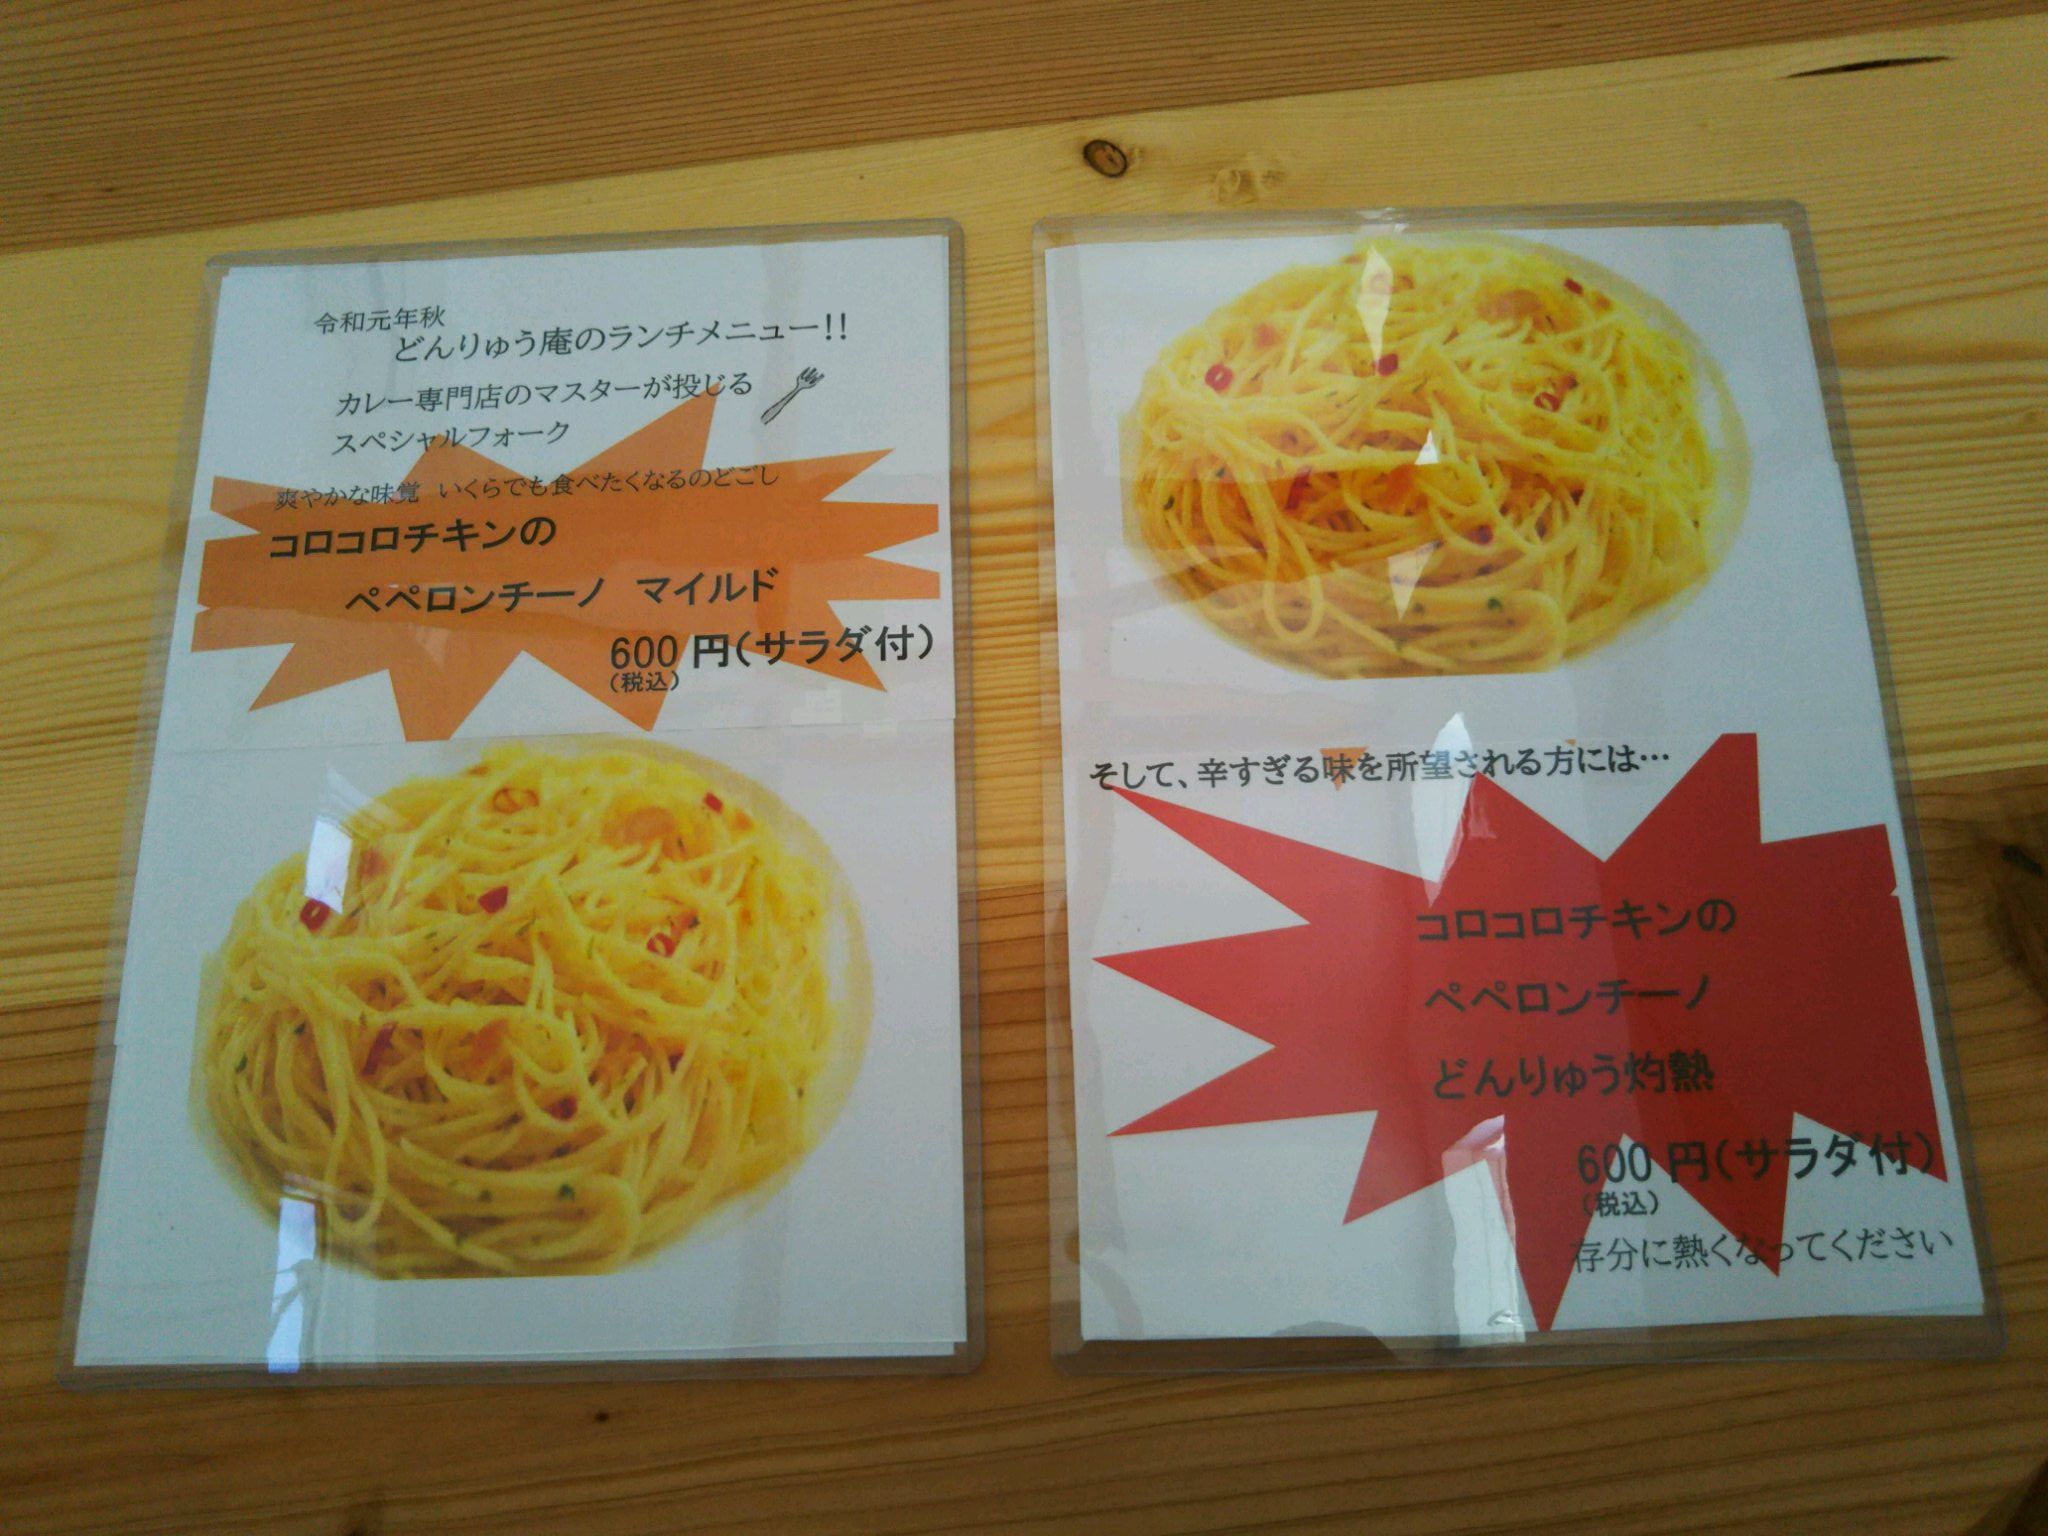 令和元年秋
どんりゅう庵のランチメニュー!!
カレー専門店のマスターが投じる
スペシャルフォーク
爽やかな味覚 いくらでも食べたくなるのどごし
コロコロチキンの
ペペロンチーノ マイルド
600円(サラダ付)
(税込)
そして、辛すぎる味を所望される方には…
コロコロチキンの
ペペロンチーノ
どんりゅう灼熱
600円(サラダ付)
(税込)
存分に熱くなってください